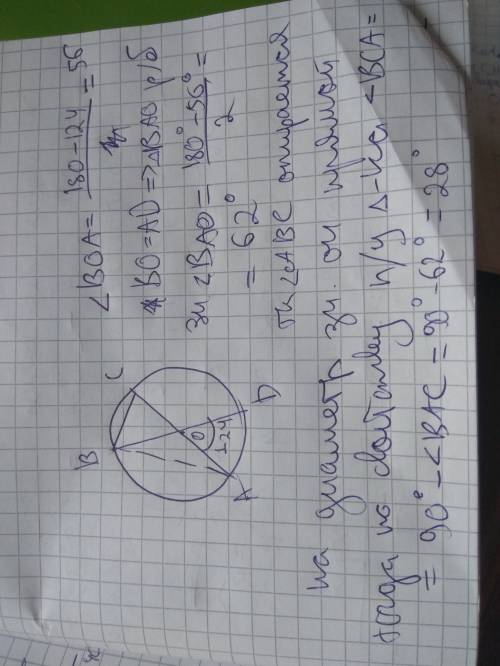 ∠BOA = 180-124 = 56
BO=AD => △BAO р/б
зн ∠BAO = 180°-56° / 2 =
= 62°
тк ∠ABC опирается
на диаметр зн. он прямой
тогда по свойству п/у △-ка ∠BCA =
= 90° - ∠BAC = 90° - 62° = 28°
B
C
O
124
D
A